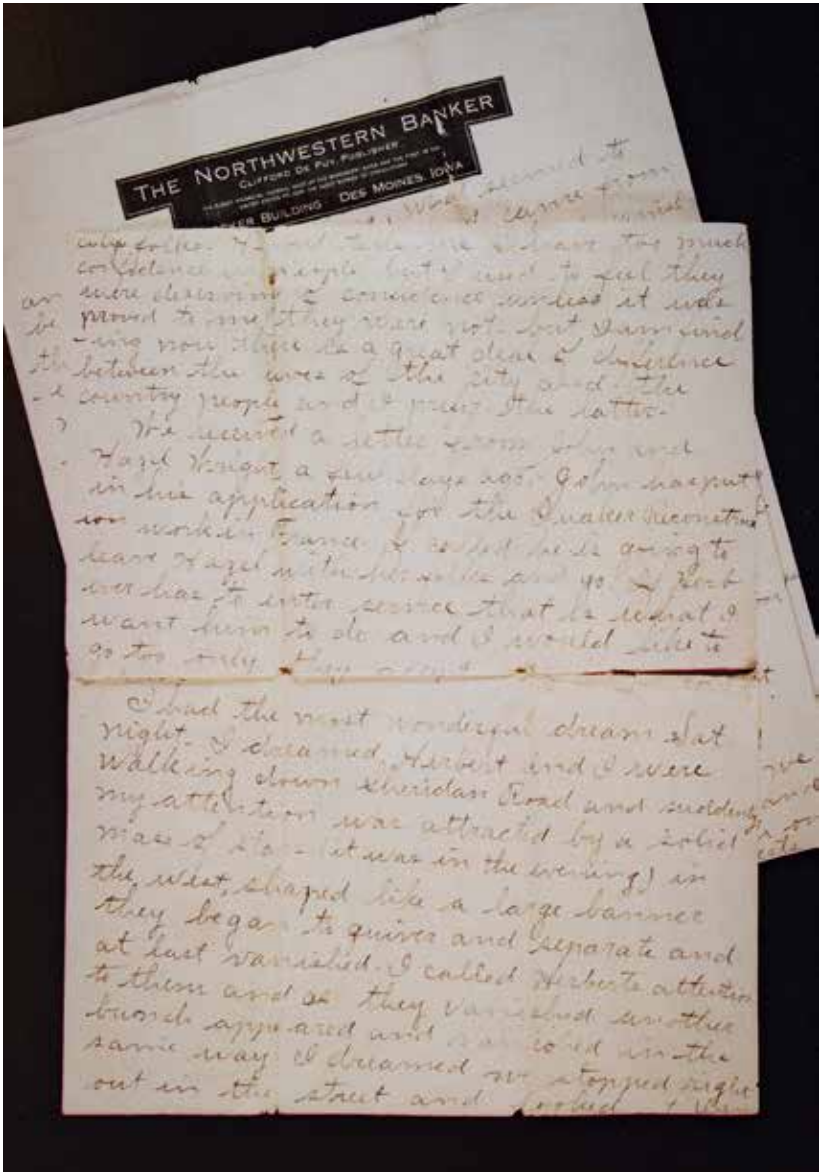 THE NORTHWESTERN BANKER
CLIFFORD DE PUY, PUBLISHER
BUILDING DES MOINES, IOWA
what seemed to
came from
city folks. I have too much
confidence in people but I used to feel they
were deserving of confidence unless it was
proved to me they were not. but I am find
-ing now there is a great deal of difference
between the lives of the city and the
country people and I prefer the latter.
We received a letter from John and
Hazel Wright a few days ago. John has put
in his application for the Quaker reconstruct
ion work in France. If called he is going to
leave Hazel with her folks and go. If Herb
ever has to enter service that is what I
want him to do and I would like to
go too only they
I had the most wonderful dream last
night. I dreamed Herbert and I were
walking down Sheridan Road and suddenly
my attention was attracted by a solid
mass of stars (it was in the evening) in
the west, shaped like a large banner
they began to quiver and separate and
at last vanished. I called Herberts attention
to them and as they vanished another
bunch appeared and vanished in the
same way I dreamed we stopped right
out in the street and looked